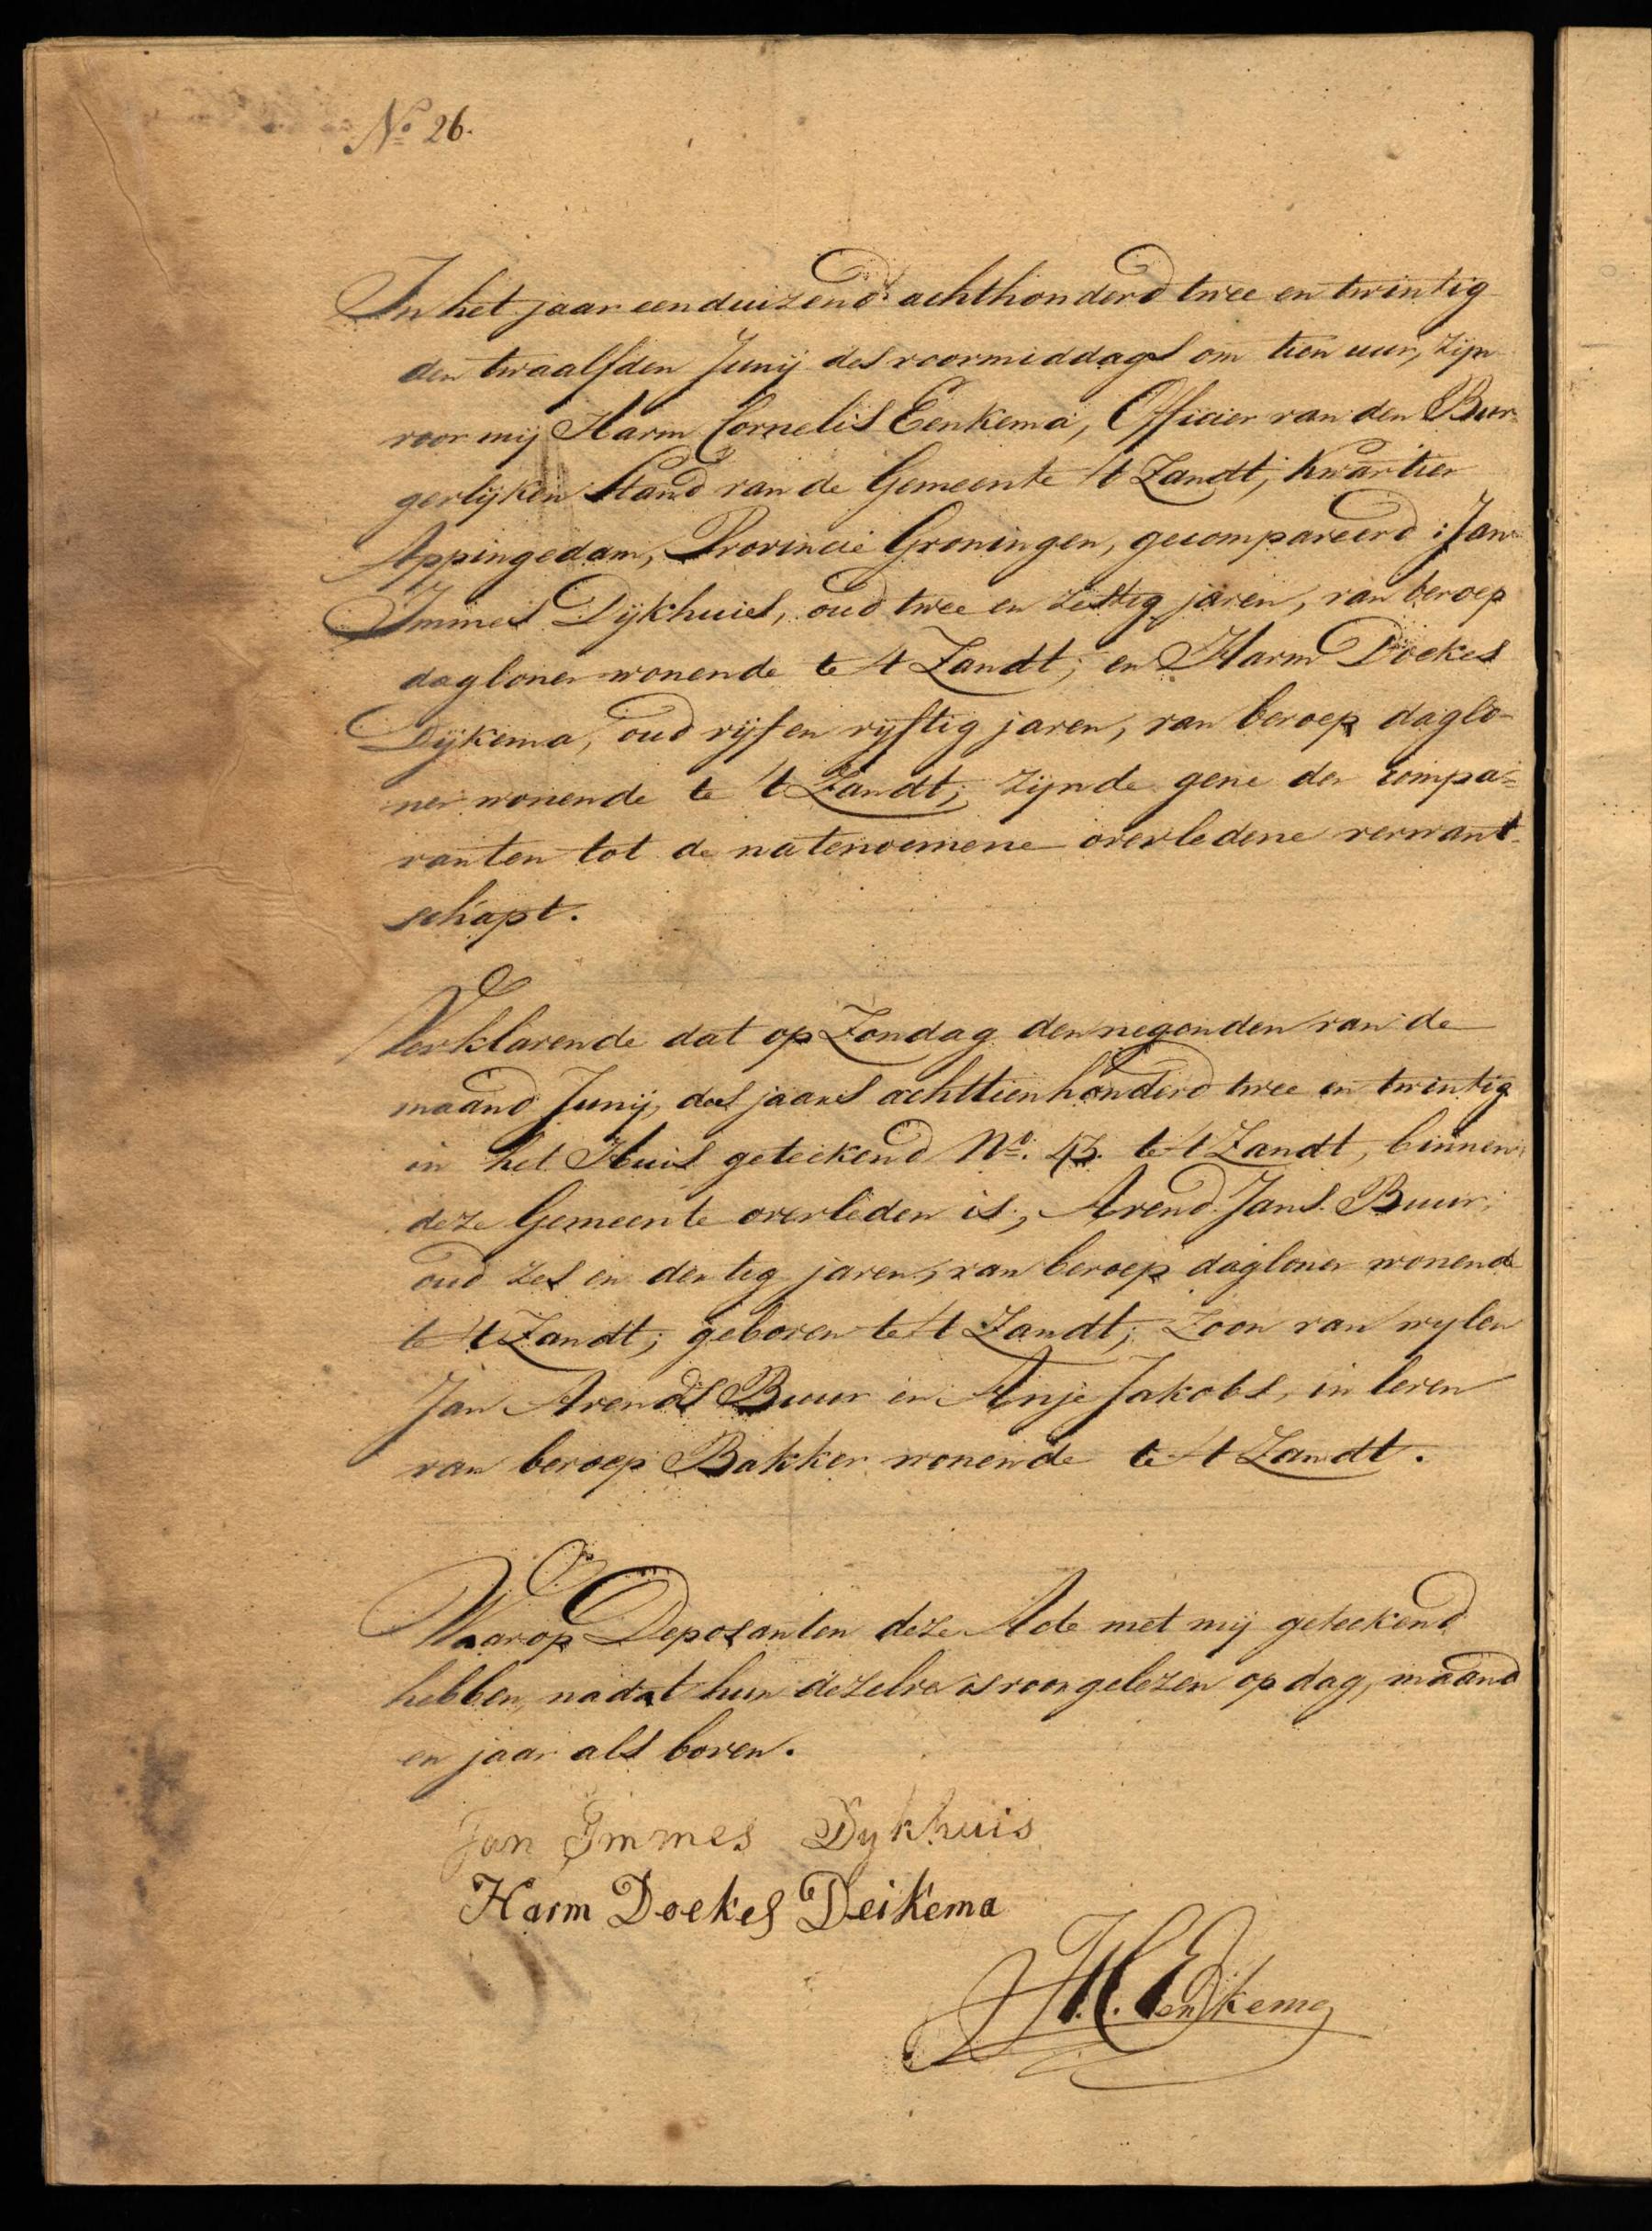 No 26.
In het jaar eenduizend achthonderd twee en twintig
den twaalfden Junij des voormiddags om tien uur, zijn
voor mij Harm Cornelis Eenkema, Officier van den Bur-
gerlijken Stand van de Gemeente 't Zandt; Kwartier
Appingedam, Provincie Groningen, gecompareerd : Jan
Immes Dijkhuis, oud twee en zestig jaren, van beroep
dagloner wonende te 't Zandt; en Harm Doekes
Dijkema, oud vijf en vijftig jaren, van beroep daglo-
ner wonende te 't Zandt; zijnde gene der compa-
ranten tot de natenoemene overledene verwant-
schapt.
Verklarende dat op Zondag den negenden van de
maand Junij, des jaars achttienhonderd twee en twintig
in het Huis geteekend No. 43. te 't Zandt, binnen
deze Gemeente overleden is, Arend Jans Buur,
oud zes en dertig jaren, van beroep dagloner wonende
te 't Zandt; geboren te 't Zandt; Zoon van wylen
Jan Arends Buur en Anje Jakobs, in leven
van beroep Bakker wonende te 't Zandt.
Waarop Deposanten deze Acte met mij geteekend
hebben, nadat hun dezelve is voorgelezen op dag, maand
en jaar als boven.
Jan Immes Dykhuis
Harm Doekes Deikema
H.C. Eenkema